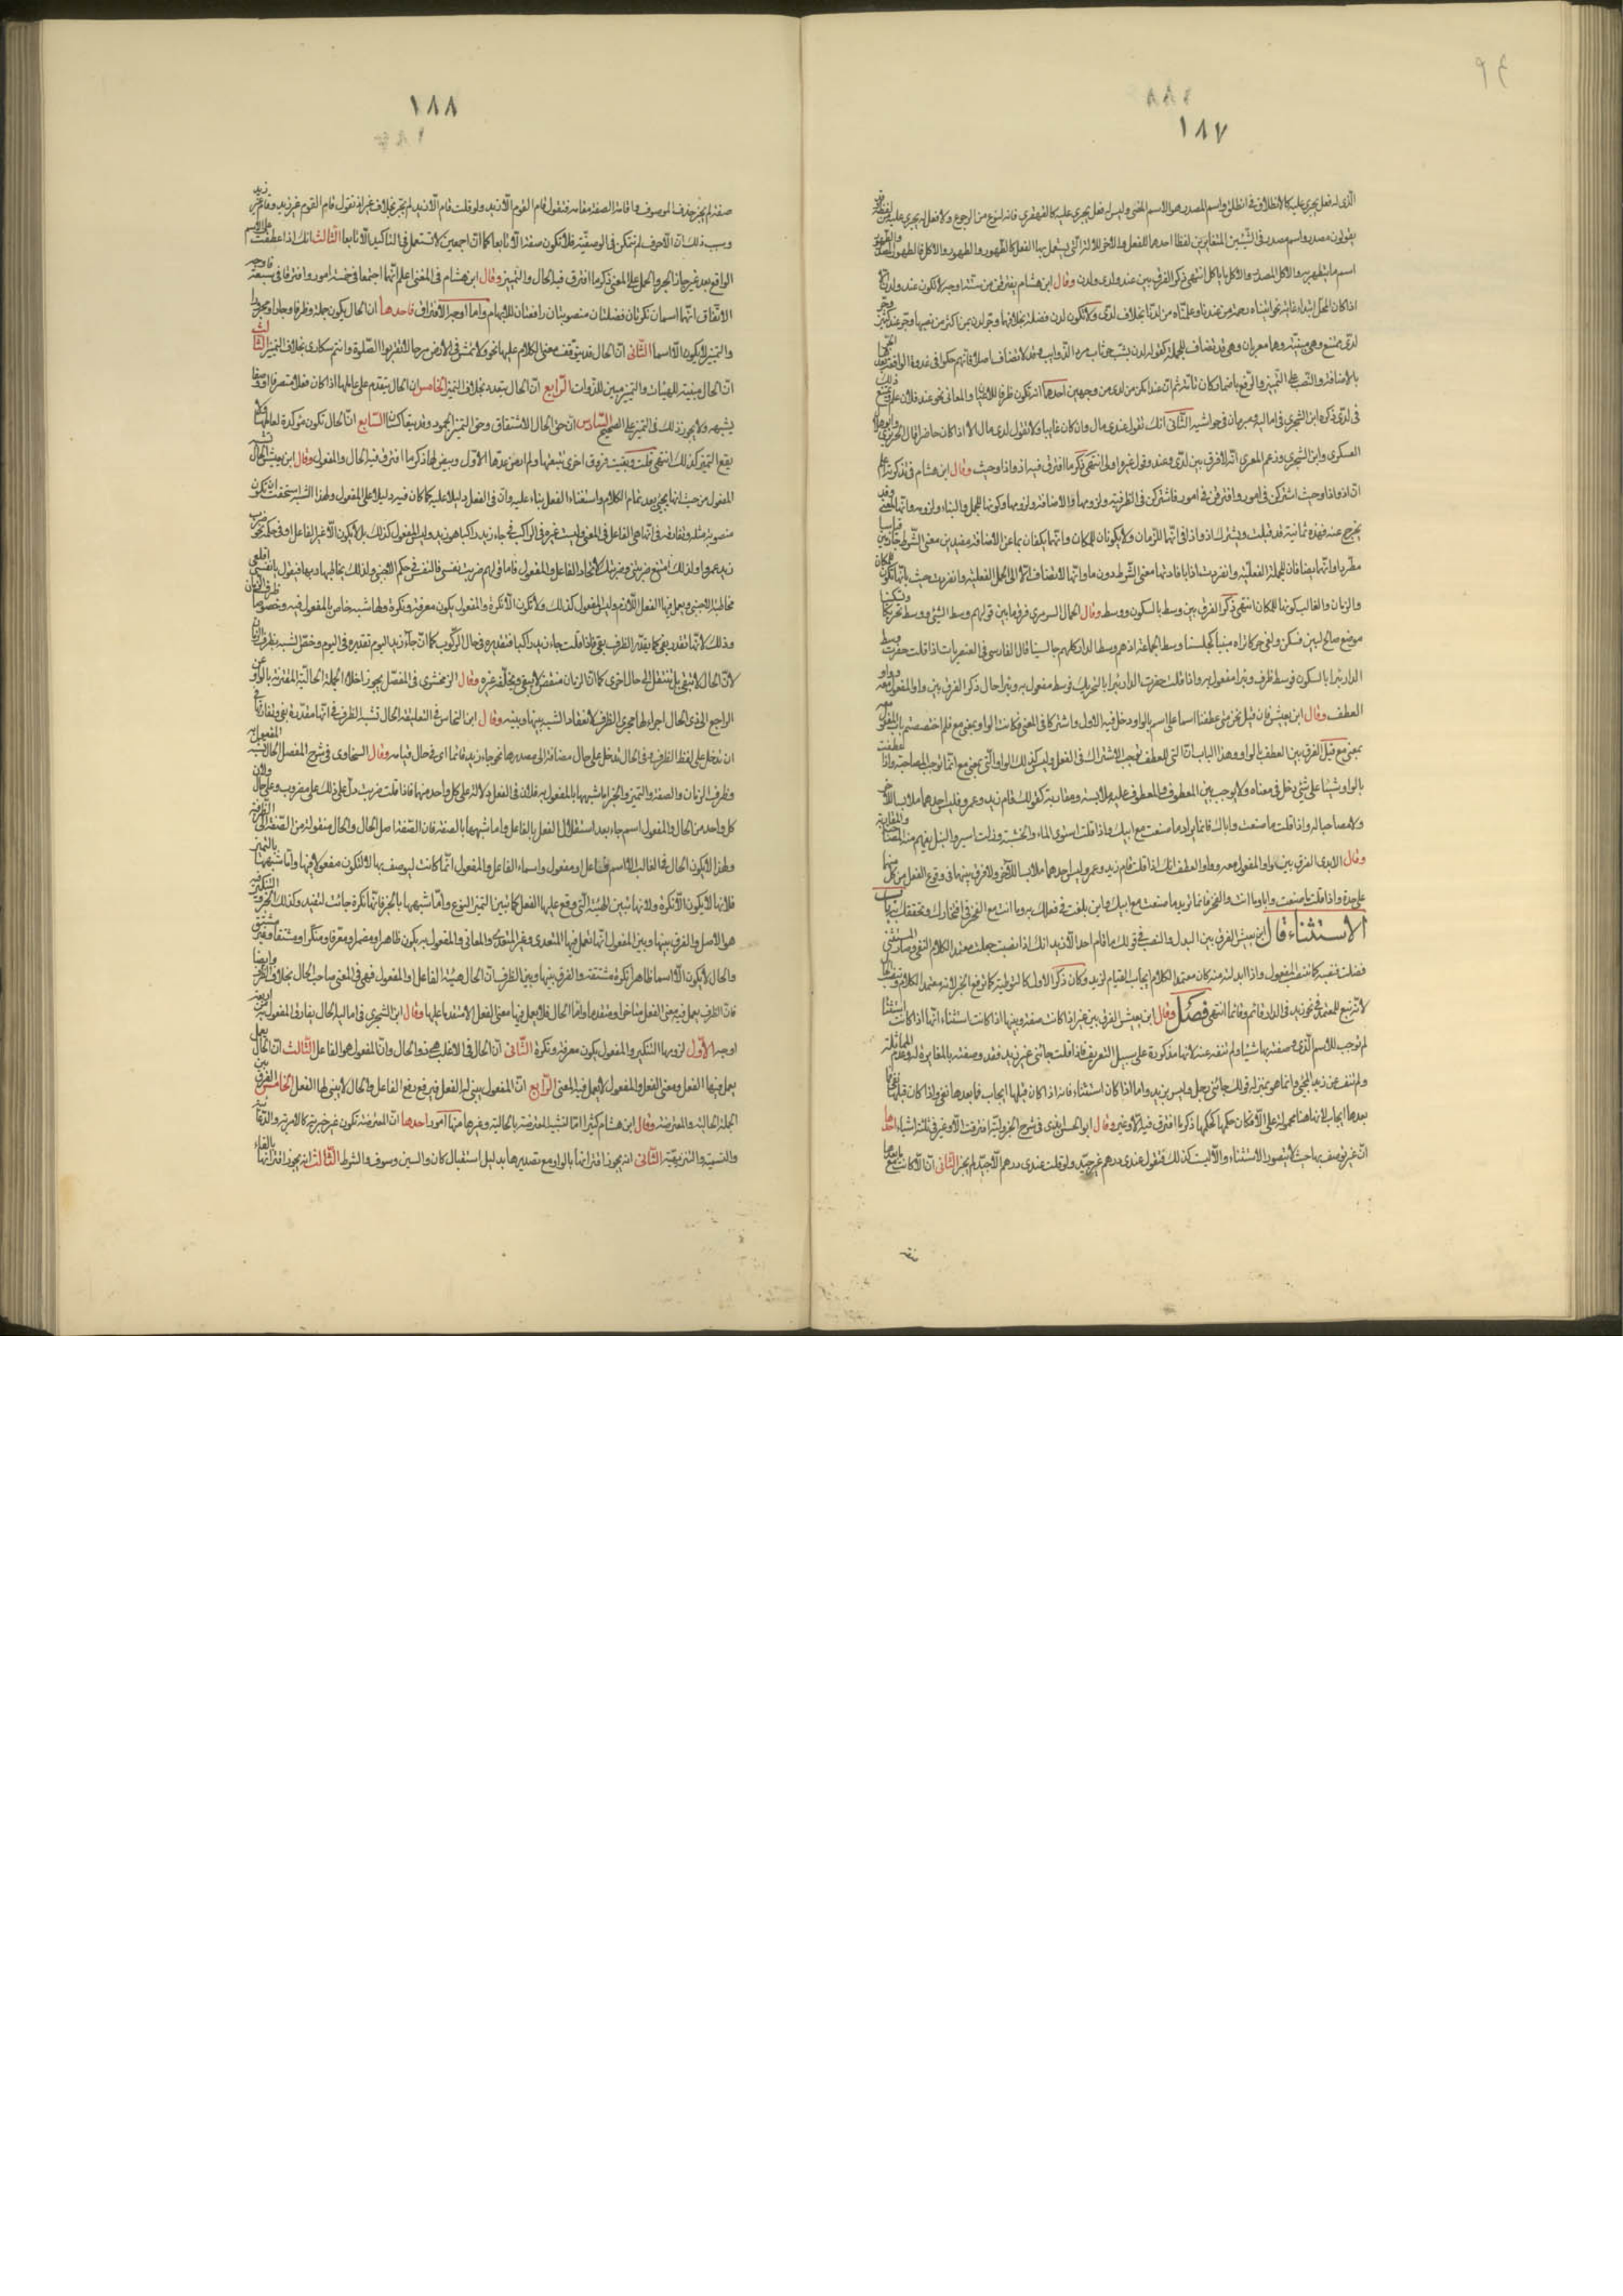 ١٨٧
الذى له فعل يجرى عليه كالانطلاق فى انطلق واسم المصدر هو الاسم المعنى وليس له فعل يجرى عليه كالقهقرى فانه لنوع من الرجوع ولا فعل له يجرى عليه من لفظه
يقولون مصدر واسم مصدر فى الشيئين المتغايرين لفظا احدهما للفعل والاخر للالة التى يستعمل بها الفعل كالطهور والطهور والاكل والاكل فالطهور المصدر
اسم ما يتطهر به والاكل المصدر والاكل ما يؤكل انتهى ذكر الفرق بين عند ولدى ولدن وقال ابن هشام يفترقن من ستة اوجه
اذا كان المحل ابتداء غاية نحو اتيناه رحمة من عندنا وعلمناه من لدنا بخلاف لدى ولا تكون لدن فضلة بخلافهما وجر لدن بمن اكثر من نصبها وجر عند كثير وجر
لدى ممتنع وهى مبنية وهما معربان وهى قد تضاف للجملة كقوله لدن شب حتى شاب سود الذوائب وقد لا تضاف اصلا فانهم حكوا فى غدوة الواقعة بعدها الجر
بالاضافة والنصب على التمييز والرفع باضمار كان تامة ثم ان عند امكن من لدى من وجهين احدهما انها تكون ظرفا للاعيان والمعانى نحو عند فلان علم ويمتنع ذلك
فى لدى ذكره ابن الشجرى فى اماليه ومبرمان فى حواشيه الثانى انك تقول عندى مال وان كان غائبا ولا تقول لدى مال الا اذا كان حاضرا قاله الحريرى وابو هلال
العسكرى وابن الشجرى وزعم المعرى انه لا فرق بين لدى وعند وقول غيره اولى انتهى ذكر ما افترق فيه اذ واذا وحيث وقال ابن هشام فى تذكرته اعلم
ان اذ واذا وحيث اشتركن فى امور وافترقن فى امور فاشتركن فى الظرفية ولزومها والاضافة ولزومها وكونها للجمل والبناء ولزومه وانها لمعنى وقد
يخرج عنه فهذه ثمانية قد قيلت ويشترك اذ واذا فى انهما للزمان ولا يكونان للمكان وانهما يكفان بما عن الاضافة مفيدين معنى الشرط جازمين قياسا
مطردا وانهما يضافان للجملة الفعلية وانفردت اذا بافادتها معنى الشرط دون ما وانها لا تضاف الا الى الجمل الفعلية وانفردت حيث بانها تكون للمكان
والزمان والغالب كونها للمكان انتهى ذكر الفرق بين وسط بالسكون ووسط وقال الجمال السرمرى فرق ما بين قولهم وسط الشىء ووسط تحريكا وتسكينا
موضع صالح لبين فسكن ولفى حركا تراه مبينا كجلسنا وسط الجماعة اذ هم وسط الدار كلهم جالسينا قال الفارسى فى القصريات اذا قلت حفرت وسط
الدار بئرا بالسكون فوسط ظرف وبئرا مفعول به واذا قلت حفرت وسط الدار بئرا بالتحريك فوسط مفعول به وبئرا حال ذكر الفرق بين واو المفعول معه وواو
العطف وقال ابن يعيش فان قيل نحن متى عطفنا اسما على اسم بالواو دخل فيه الاول واشتركا فى المعنى فكانت الواو بمعنى مع فلم اختصصتم باب المفعول معه
بمعنى مع قيل الفرق بين العطف بالواو وهذا الباب ان التى للعطف توجب الاشتراك فى الفعل وليس كذلك الواو التى بمعنى مع انما توجب المصاحبة واذا عطفت
بالواو شيئا على شىء دخل فى معناه ولا يوجب بين المعطوف والمعطوف عليه ملابسة ومقاربة كقولك قام زيد وعمرو فليس احدهما ملابسا للاخر
ولا مصاحبا له واذا قلت ما صنعت واباك فانما يراد ما صنعت مع ابيك واذا قلت استوى الماء والخشبة وما زلت اسير والنيل يفهم منه المصاحبة والمقاربة
وقال الابدى الفرق بين الواو المفعول معه وواو العطف انك اذا قلت قام زيد وعمرو ليس احدهما ملابسا للاخر ولا فرق بينهما فى وقوع الفعل من كل منهما
على حدة واذا قلت ما صنعت واباك وما انت والفخر فانما تريد ما صنعت مع ابيك واين بلغت فى فعلك به وما انت مع الفخر فى افتخارك وتحققك به باب
الاستثناء قال ابن يعيش الفرق بين البدل والنصب فى قولك ما قام احد الا زيد انك اذا نصبت جعلت معتمد الكلام النفى وصار المستثنى
فضلة فتنصبه كما تنصب المفعول واذا ابدلته منه كان معتمد الكلام ايجاب القيام لزيد وكان ذكر الاول كالتوطئة كما ترفع الخبر لانه معتمد الكلام وتنصب الحال
لانه تبع للمعتمد فى نحو زيد فى الدار قائم وقائما انتهى فصل وقال ابن يعيش الفرق بين غير اذا كانت صفة وبينها اذا كانت استثناء انها اذا كانت صفة
لم توجب للاسم الذى وصفته بها شيئا ولم تنف عنه لانها مذكورة على سبيل التعريف فاذا قلت جاءنى غير زيد فقد وصفته بالمغايرة له وعدم المماثلة
ولم تنف عن زيد المجىء وانما هو بمنزلة قولك جاءنى رجل وليس بزيد واما اذا كان استثناء فانه اذا كان قبلها ايجاب فما بعدها نفى واذا كان قبلها نفى فما
بعدها ايجاب لانها هنا محمولة على الا فكان حكمها كحكمها ذكر ما افترق فيه الا وغير وقال ابو الحسن الابذى فى شرح الجزولية افترقت الا وغير فى ثلاثة اشياء احدها
ان غير يوصف بها حيث لا يتصور الاستثناء والا ليست كذلك فتقول عندى درهم غير جيد ولو قلت عندى درهم الا جيد لم يجز الثانى ان الا اذا كانت مع ما بعدها
١٨٨
صفة لم يجز حذف الموصوف واقامة الصفة مقامه فتقول قام القوم الا زيد ولو قلت قام الا زيد لم يجز بخلاف غير اذ تقول قام القوم غير زيد وقام غير زيد
وسبب ذلك ان الا حرف لم تتمكن فى الوصفية فلا تكون صفة الا تابعا كما ان اجمعين لا تستعمل فى التاكيد الا تابعا الثالث انك اذا عطفت على الاسم
الواقع بعد غير جاز الجر والحمل على المعنى ذكر ما افترق فيه الحال والتمييز وقال ابن هشام فى المغنى اعلم انهما اجتمعا فى خمسة امور وافترقا فى سبعة فاوجه
الاتفاق انهما اسمان نكرتان فضلتان منصوبتان رافعتان للابهام واما اوجه الافتراق فاحدها ان الحال يكون جملة وظرفا وجارا ومجرورا
والتمييز لا يكون الا اسما الثانى ان الحال قد يتوقف معنى الكلام عليها نحو ولا تمش فى الارض مرحا لا تقربوا الصلوة وانتم سكارى بخلاف التمييز الثالث
ان الحال مبينة للهيئات والتمييز مبين للذوات الرابع ان الحال يتعدد بخلاف التمييز الخامس ان الحال يتقدم على عاملها اذا كان فعلا متصرفا او وصفا
يشبهه ولا يجوز ذلك فى التمييز على الصحيح السادس ان حق الحال الاشتقاق وحق التمييز الجمود وقد يتعاكسان السابع ان الحال تكون مؤكدة لعاملها ولا
يقع التمييز كذلك انتهى قلت وبقيت فروق اخرى ذكر ما افترق فيه الحال والمفعول وقال ابن يعيش الحال تشبه
المفعول من حيث انها تجىء بعد تمام الكلام واستغناء الفعل بفاعله وان فى الفعل دليلا عليها كما كان فيه دليلا على المفعول ولهذا الشبه استحقت ان تكون
منصوبة مثله وتفارقه فى انها هى الفاعل فى المعنى وليست غيره فى الراكب فى جاء زيد راكبا هو زيد وليس المفعول كذلك بل لا يكون الا غير الفاعل او فى حكمه نحو ضرب
زيد عمرا ولذلك امتنع ضربتنى وضربتك لاتحاد الفاعل والمفعول فاما قولهم ضربت نفسى فالنفس فى حكم الاجنبى ولذلك يخاطبها ربها فيقول يا نفس اقلعى
مخاطبة الاجنبى ويعمل فيها الفعل اللازم وليس المفعول كذلك ولا تكون الا نكرة والمفعول يكون معرفة ونكرة ولها شبه خاص بالمفعول فيه وخصوصا ظرف الزمان
وذلك لانها تقدر بفى كما يقدر الظرف بفى فاذا قلت جاء زيد راكبا فتقديره فى حال الركوب كما ان جاء زيد اليوم تقديره فى اليوم وخص الشبه بظرف الزمان
لان الحال لا تبقى بل تنتقل الى حال اخرى كما ان الزمان منقض لا يبقى ويخلفه غيره وقال الزمخشرى فى المفصل يجوز اخلاء الجملة الحالية المقترنة بالواو عن
الراجع الى ذى الحال اجراء لها مجرى الظرف لانعقاد الشبه بينها وبينه وقال ابن النحاس فى التعليقة الحال تشبه الظرف فى انها مقدرة بفى وتفارقه فى
ان تدخل على لفظ الظرف وفى الحال تدخل على حال مضافة الى مصدرها نحو جاء زيد قائما اى فى حال قيامه وقال السخاوى فى شرح المفصل الحال تشبه المفعول به
وظرف الزمان والصفة والتمييز والخبر اما شبهها بالمفعول به فلان فى الفعل دلالة على كل واحد منهما فاذا قلت ضربت دل على ذلك على مضروب وعلى حال ولان
كل واحد من الحال والمفعول اسم جاء بعد استقلال الفعل بالفاعل واما شبهها بالصفة فان الصفة اصل الحال والحال منقولة من الصفة الى الظرفية
ولهذا لا يكون الحال فى الغالب الا اسم فاعل او مفعول واسماء الفاعل والمفعول انما كانت ليوصف بها لا لتكون مفعولا فيها واما شبهها بالتمييز
فلانها لا يكون الا نكرة ولانها تبين الهيئة التى وقع عليها الفعل كما تبين التمييز النوع واما شبهها بالخبر فانها نكرة جاءت لتفيد وكذلك الخبر والتنكير فيه
هو الاصل والفرق بينها وبين المفعول انها تعمل فيها المتعدى وغير المتعدى والمعانى والمفعول به يكون ظاهرا ومضمرا ومعرفا ومنكرا ومشتقا وغير مشتق
والحال لا يكون الا اسما ظاهرا نكرة مشتقة والفرق بينها وبين الظرف ان الحال هيئة الفاعل او المفعول فهى فى المعنى صاحب الحال بخلاف الظرف وايضا
فان الظرف يعمل فيه معنى الفعل متاخرا ومتقدما واما الحال فلا يعمل فيها معنى الفعل الا متقدما عليها وقال ابن الشجرى فى اماليه الحال يفارق المفعول به من اربعة
اوجه الاول لزومها التنكير والمفعول يكون معرفة ونكرة الثانى ان الحال فى الاغلب هى ذو الحال وان المفعول هو غير الفاعل الثالث ان الحال يعمل
فيها الفعل ومعنى الفعل والمفعول لا يعمل فيه المعنى الرابع ان المفعول يبنى له الفعل فيرفع رفع الفاعل والحال لا يبنى لها الفعل الخامس الفرق بين
الجملة الحالية والمعترضة وقال ابن هشام كثيرا ما تشتبه المعترضة بالحالية وغيرها منها امور احدها ان المعترضة تكون غير خبرية كالامرية والدعائية
والقسمية والتنزيهية الثانى انه يجوز اقترانها بالواو مع تصديرها بدليل استقبال كان والسين وسوف والشرط الثالث انه يجوز اقترانها بالفاء